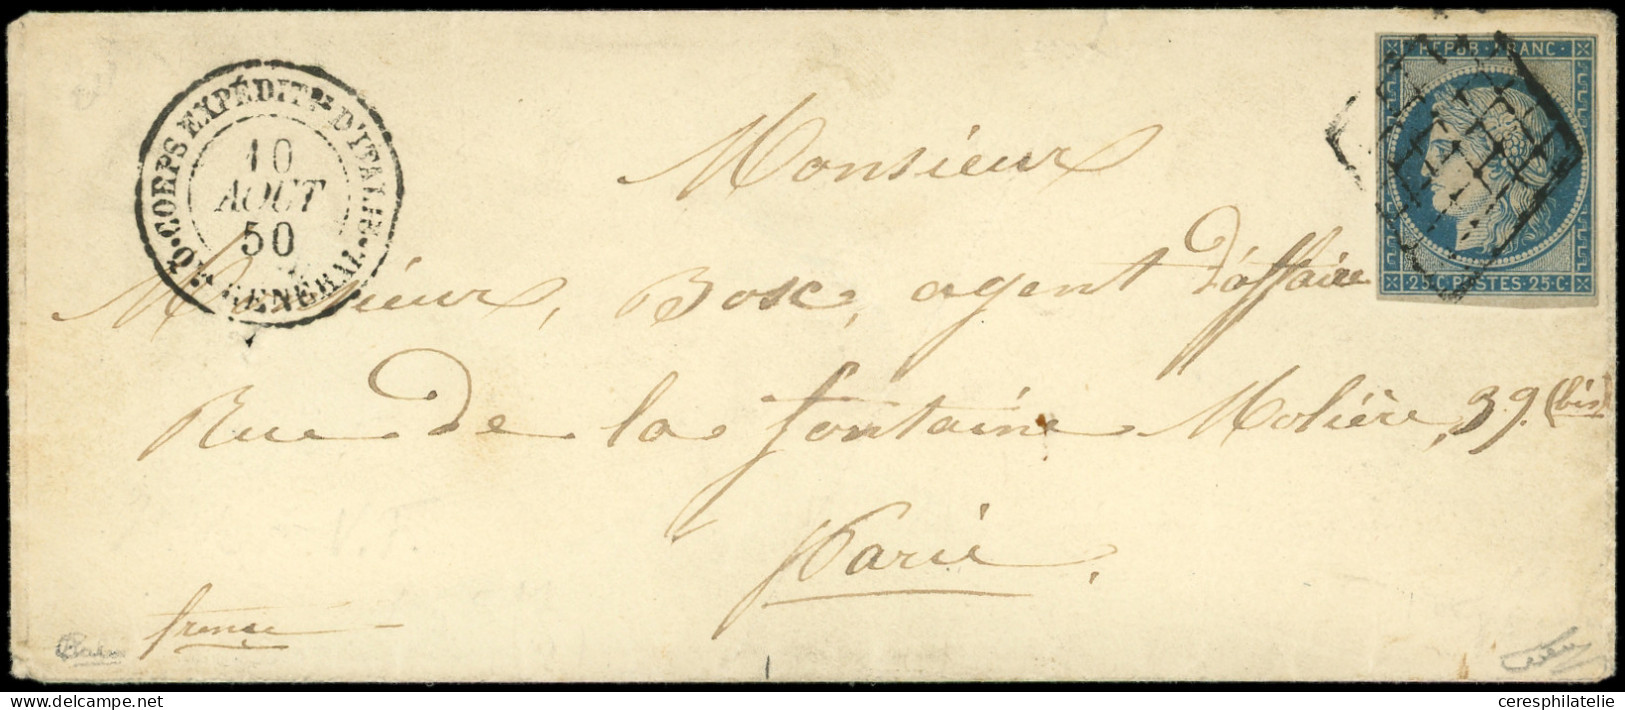 CORPS EXPÉDITRE D'ITALIE
10
AOUT
50
Qr GÉNÉRAL
REPUB. FRANC.
25 C. POSTES 25 C
Monsieur
Monsieur, Bosc, agent d'affaire
Rue de la fontaine Molière, 39. (bis)
Paris.
france
delcampe.net
ceresphilatelie